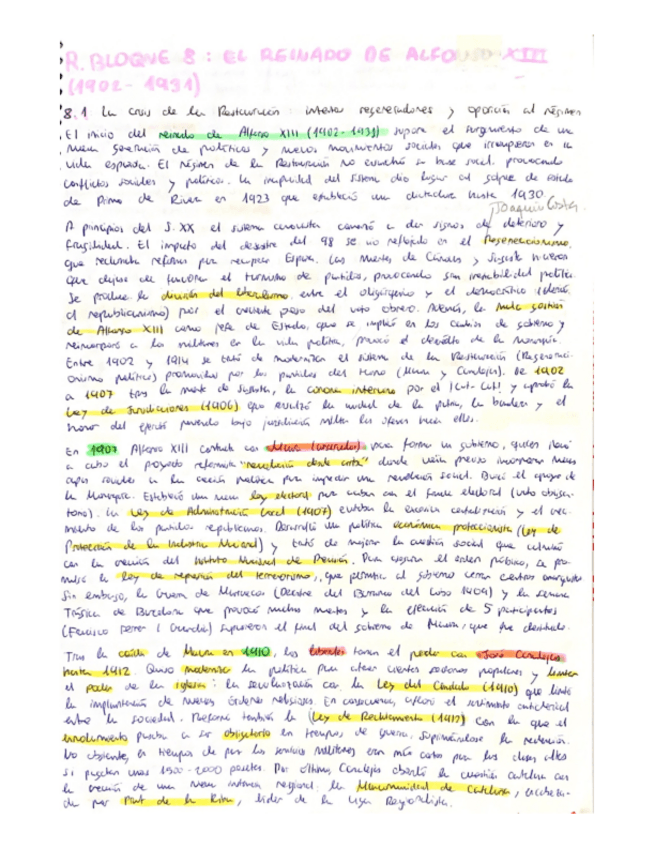 R. BLOQUE 8: EL REINADO DE ALFONSO XIII
(1902-1931)
8.1 La crisis de la Restauración intentos regeneradores y oposición al régimen
El inicio del reinado de Alfonso XIII (1902-1931) supone el surgimiento de una
nueva generación de políticos y nuevos movimientos sociales que irrumpieron en la
vida española. El régimen de la Restauración no ensanchó su base social, provocando
conflictos sociales y políticos. La inquietud del sistema dio lugar al golpe de estado
de Primo de Rivera en 1923 que estableció una dictadura hasta 1930.
Joaquín Costa
A principios del S. XX el sistema canovista comenzó a dar signos de deterioro y
fragilidad. El impacto del desastre del 98 se vio reflejado en el Regeneracionismo,
que reclamaba reformas para recuperar España. Las muertes de Cánovas y Sagasta hicieron
que dejase de funcionar el turnismo de partidos, provocando gran inestabilidad política.
Se produce la división del liberalismo entre el oligárquico y el democrático (
el republicanismo) por el creciente peso del voto obrero. Además, la mala gestión
de Alfonso XIII como jefe de Estado, que se implicó en los cambios de gobierno y
reincorporó a los militares en la vida política, provocó el descrédito de la monarquía.
Entre 1902 y 1914 se trató de modernizar el sistema de la Restauración (Regeneracionismo
político) promovido por los partidos del turno (Maura y Canalejas). De 1902
a 1907 tras la muerte de Sagasta, la crisis interna por el ¡Cut-Cut! y aprobó la
Ley de Jurisdicciones (1906) que la unidad de la patria, la bandera y el
honor del ejército poniendo bajo jurisdicción militar las ofensas hacia ellos.
En 1907 Alfonso XIII contacta con Maura (conservador) para formar un gobierno, quien llevó
a cabo el proyecto reformista "revolución desde arriba" donde veía preciso incorporar nuevas
capas sociales a la acción política para impedir una revolución social. Buscó el apoyo de
la Monarquía. Estableció una nueva ley electoral para acabar con el fraude electoral (voto obliga-
torio). La Ley de Administración Local (1907) evitaba la y el creci-
miento de los partidos republicanos. Desarrolló una política económica proteccionista (Ley de
Protección de la Industria Nacional) y trató de mejorar la cuestión social que culminó
con la creación del Instituto Nacional de Previsión. Para asegurar el orden público, se pro-
mulgó la ley de represión del terrorismo, que permitía al gobierno cerrar centros anarquistas
Sin embargo, la Guerra de Marruecos (Desastre del Barranco del Lobo 1909) y la Semana
Trágica de Barcelona que provocó muchas muertes y la ejecución de 5 participantes
(Francisco Ferrer i Guardia) supusieron el final del gobierno de Maura, que fue destituido.
Tras la caída de Maura en 1910, los liberales toman el poder con José Canalejas
hasta 1912. Quiso modernizar la política para atraer ciertos sectores populares y limitar
el poder de la iglesia: la secularización con la Ley del Candado (1910) que limitó
la implantación de nuevas órdenes religiosas. En consecuencia, afloró el sentimiento anticlerical
entre la sociedad. Reformó también la (Ley de Reclutamiento (1912) con la que el
enrolamiento pasaba a ser obligatorio en tiempos de guerra, suprimiéndose la redención.
No obstante, en tiempos de paz los servicios militares eran más cortos para las clases altas
si pagaban unas 1500-2000 pesetas. Por último, Canalejas abordó la cuestión catalana con
la creación de una nueva instancia regional: la Mancomunidad de Cataluña, encabeza-
da por Prat de la Riba, líder de la Liga Regionalista.